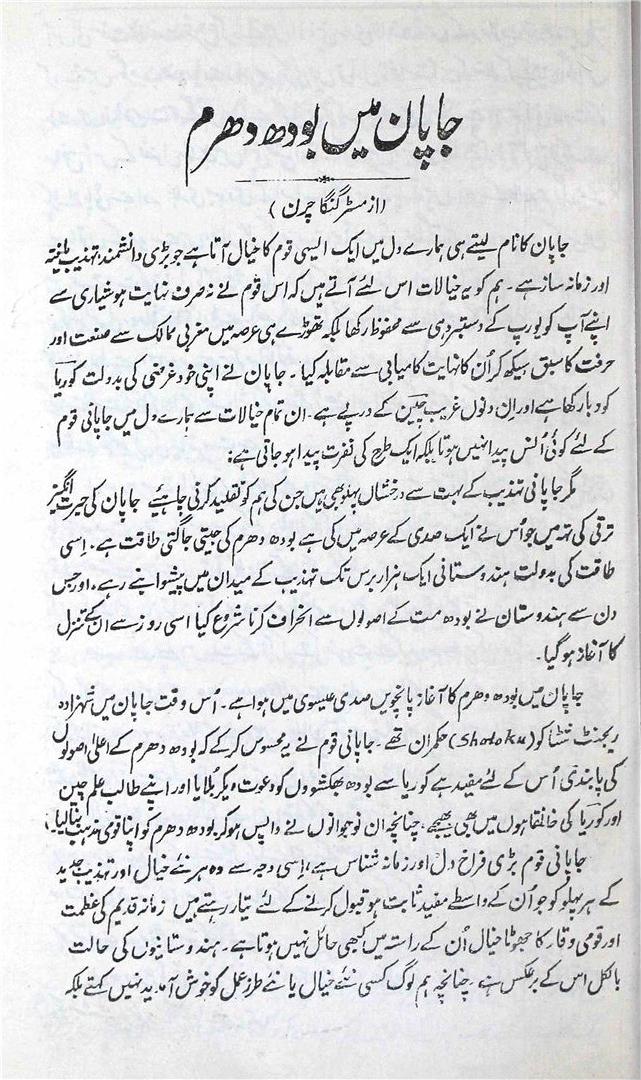 جاپان میں بودھ دھرم
(از مسٹر گنگا چرن)
جاپان کا نام لیتے ہی ہمارے دل میں ایک ایسی قوم کا خیال آتا ہے جو بڑی دانشمند، تہذیب یافتہ
اور زمانہ ساز ہے۔ ہم کو یہ خیالات اس لئے آتے ہیں کہ اس قوم نے نہ صرف نہایت ہوشیاری سے
اپنے آپ کو یورپ کے دستبردی سے محفوظ رکھا بلکہ تھوڑے ہی عرصہ میں مغربی ممالک سے صنعت اور
حرفت کا سبق سیکھ کر اُن کا نہایت کامیابی سے مقابلہ کیا۔ جاپان نے اپنی خود غرضی کی بدولت کوریا
کو دبا رکھا ہے اور اِن دنوں غریب چین کے درپے ہے۔ ان تمام خیالات سے ہمارے دل میں جاپانی قوم
کے لئے کوئی اُنس پیدا نہیں ہوتا بلکہ ایک طرح کی نفرت پیدا ہو جاتی ہے:
مگر جاپانی تہذیب کے بہت سے درخشاں پہلو بھی ہیں جن کی ہم کو تقلید کرنی چاہئے جاپان کی حیرت انگیز
ترقی کی تہ میں جو اُس نے ایک صدی کے عرصہ میں کی ہے بودھ دھرم کی جیتی جاگتی طاقت ہے۔ اِسی
طاقت کی بدولت ہندوستانی ایک ہزار برس تک تہذیب کے میدان میں پیشوا بنے رہے۔ اور جس
دن سے ہندوستان نے بودھ مت کے اصولوں سے انحراف کرنا شروع کیا اسی روز سے ان کے تنزل
کا آغاز ہو گیا۔
جاپان میں بودھ دھرم کا آغاز پانچویں صدی عیسوی میں ہوا ہے۔ اُس وقت جاپان میں شہزادہ
ریجنٹ شٹا کو (Shotoku) حکمران تھے۔ جاپانی قوم نے یہ محسوس کر کے کہ بودھ دھرم کے اعلیٰ اصولوں
کی پابندی اُس کے لئے مفید ہے کوریا سے بودھ بھکشوؤں کو دعوت دیکر بُلایا اور اپنے طالب علم چین
اور کوریا کی خانقاہوں میں بھی بھیجے، چنانچہ ان نوجوانوں نے واپس ہو کر بودھ دھرم کو اپنا قومی مذہب بنالیا،
جاپانی قوم بڑی فراخ دل اور زمانہ شناس ہے، اِسی وجہ سے وہ ہر نئے خیال اور تہذیب جدید
کے ہر پہلو کو جو اُن کے واسطے مفید ثابت ہو قبول کرنے کے لئے تیار رہتے ہیں زمانہ قدیم کی عظمت
اور قومی وقار کا جھوٹا خیال اُن کے راستہ میں کبھی حائل نہیں ہوتا ہے۔ ہندوستانیوں کی حالت
بالکل اس کے برعکس ہے۔ چنانچہ ہم لوگ کسی نئے خیال یا نئے طرز عمل کو خوش آمدید نہیں کہتے بلکہ